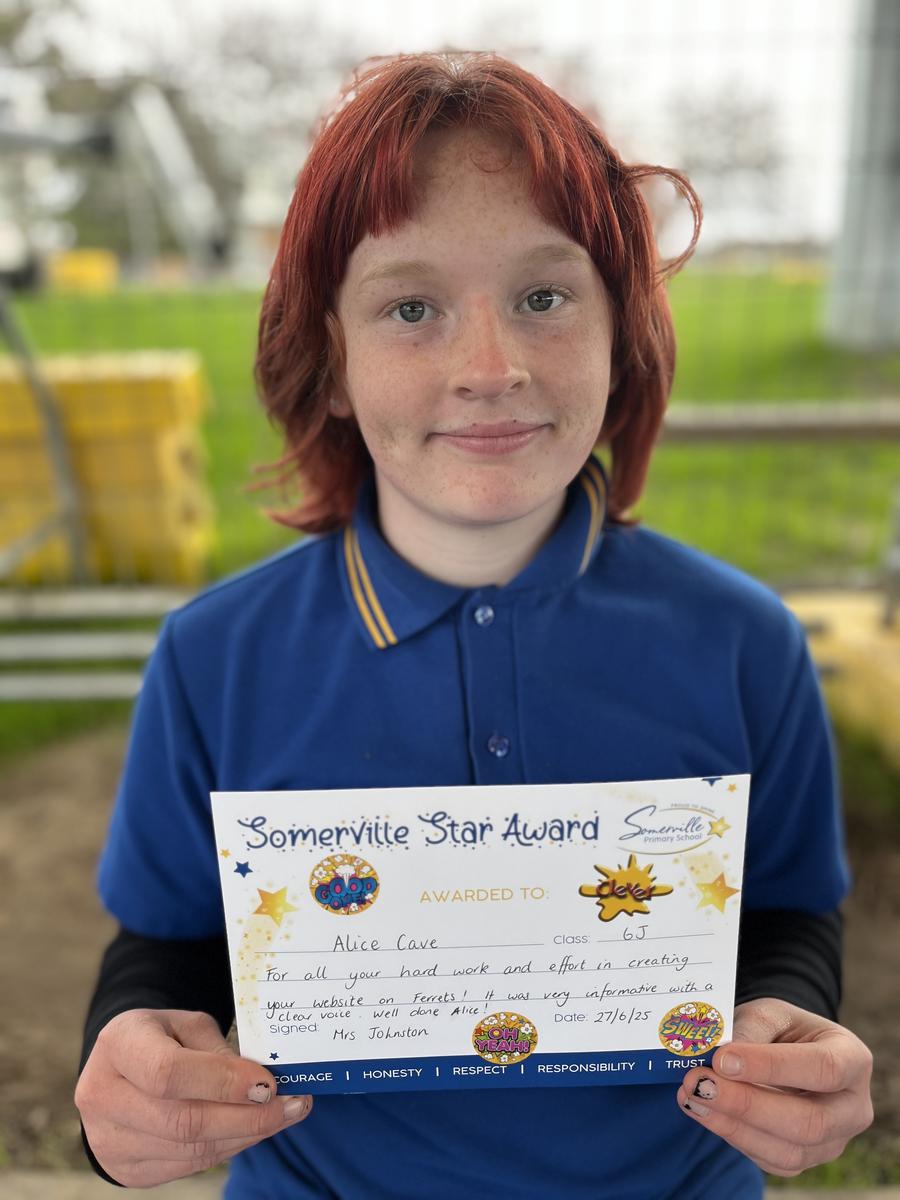 Somerville Star Award
PROUD TO SHINE
Somerville
Primary School
AWARDED TO:
Clever
Alice Cave
Class: 6J
For all your hard work and effort in creating
your website on Ferrets! It was very informative with a
clear voice. Well done Alice!
Signed: Mrs Johnston
Date: 27/6/25
OH YEAH!
SWEET!
COURAGE | HONESTY | RESPECT | RESPONSIBILITY | TRUST